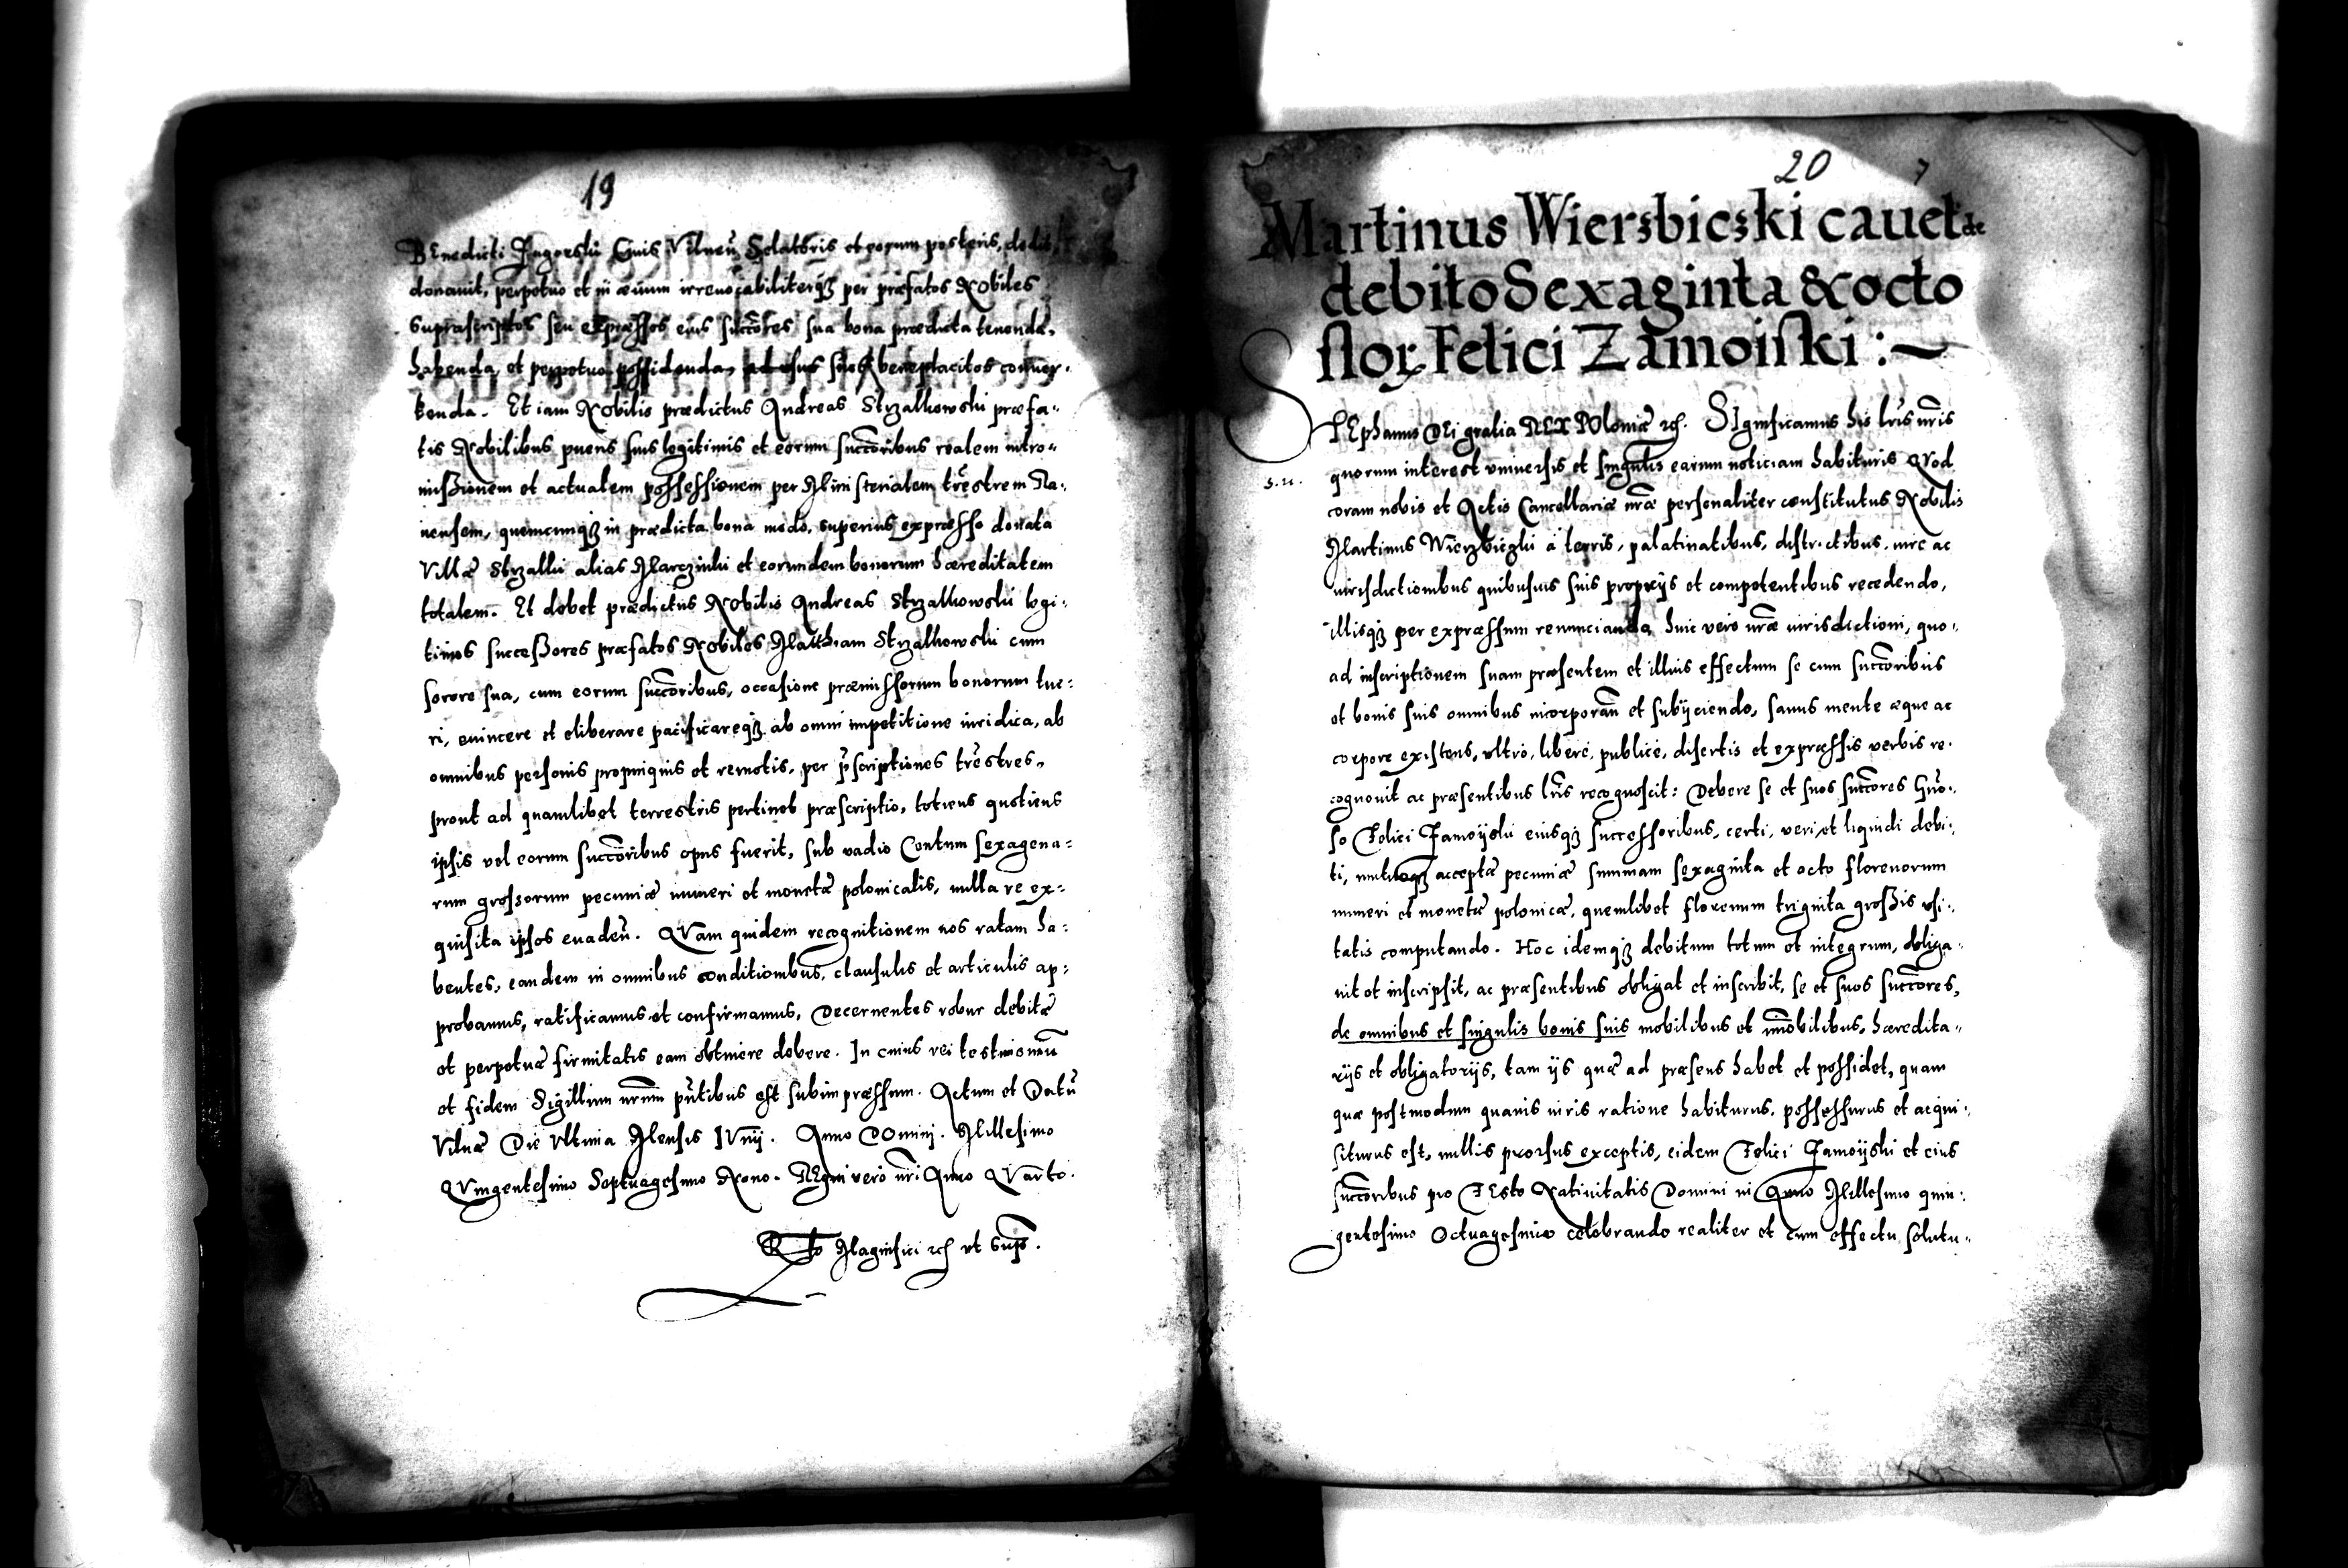 19
BEnedicti Jugoeski Ciuis Vilneñ Selatoris et eorum posteris, dedit,
donauit, perpetuo et in æuum irreuocabiliterqȝ per præfatos Nobiles
suprascriptos seu expressos eius succ͠ores sua bona prædicta tenenda,
habenda, et perpetuo possidenda, ad usus suos beneplacitos conuer-
tenda. Et iam Nobilis prædictus Andreas Strzalkowski præfa-
tis Nobilibus pueris suis legitimis et eorum succ͠oribus realem intro-
missionem et actualem possessionem per Ministerialem tr͠estrem Ra-
uensem, quemcunqȝ in prædicta bona modo, superius expræsso donata
Villæ Strzalki alias Marczinki et eorundem bonorum hæreditatem
totalem. Et debet prædictus Nobilis Andreas Strzalkowski legi-
timos successores præfatos Nobiles Matthiam Strzalkowski cum
sorore sua, cum eorum succ͠oribus, occasione præmissorum bonorum tue-
ri, euincere et eliberare pacificareqȝ ab omni impetitione iuridica, ab
omnibus personis propinquis et remotis, per p͠scriptiones tr͠estres,
prout ad quamlibet terrestris pertineb præscriptio, totiens quotiens
ipsis vel eorum succ͠oribus opus fuerit, sub vadio Centum sexagena-
rum grossorum pecuniæ numeri et monetæ polonicalis, nulla re ex-
quisita ipsos euadeñ. QVam quidem recognitionem nos ratam ha-
bentes, eandem in omnibus conditionibus, clausulis et articulis ap-
probamus, ratificamus et confirmamus, Decernentes robur debitæ
et perpetuæ firmitatis eam obtinere debere. In cuius rei testimoniũ
et fidem Sigillum nr͠um pñtibus est subimpræssum. Actum et Datũ
Vilnæ Die Vltima Mensis IVnij. Anno DOmini. Millesimo
QVingentesimo Septuagesimo Nono. REgni vero nr͠i Anno QVarto.
Rto Magnifici ꝛc̃ vt sup͠.
20
Martinus Wierzbiczki cauet de
debito Sexaginta & octo
flor Felici Zamoiski :~
STEphanus DEi gratia REX POloniæ ꝛc̃. SIgnificamus his lr͠is nr͠is
s.n.
quorum interest vniuersis et singulis earum noticiam habituris QVod
coram nobis et Actis Cancellariæ nr͠æ personaliter constitutus Nobilis
Martinus Wierzbiczki a terris, palatinatibus, districtibus, iure ac
iurisdictionibus quibusuis suis proprijs et competentibus recedendo,
illisqȝ per expræssum renuncianda, huic vero nr͠æ iurisdictioni, quo-
ad inscriptionem suam præsentem et illius effectum se cum succ͠oribus
et bonis suis omnibus incorporañ et subijciendo, sanus mente æque ac
corpore existens, vltro, libere, publice, disertis et expræssis verbis re-
cognouit ac præsentibus lr͠is recognoscit: Debere se et suos succ͠ores Gño-
so Felici Zamoyski eiusqȝ successoribus, certi, veri, et liquidi debi-
ti, acceptæ pecuniæ summam sexaginta et octo florenorum
numeri et monetæ polonicæ, quemlibet florenum triginta grossis vsi-
tatis computando. Hoc idemqȝ debitum totum et integrum, obliga-
uit et inscripsit, ac præsentibus obligat et inscribit, se et suos succ͠ores,
de omnibus et singulis bonis suis mobilibus et im͠obilibus, hæredita-
rijs et obligatorijs, tam ijs quæ ad præsens habet et possidet, quam
quæ postmodum quauis iuris ratione habiturus, possessurus et acqui-
siturus est, nullis prorsus exceptis, eidem Felici Zamoyski et eius
succ͠oribus pro FEsto Natiuitatis Domini in Anno Millesimo quin-
gentesimo Octuagesimo celebrando realiter et cum effectu solutu-